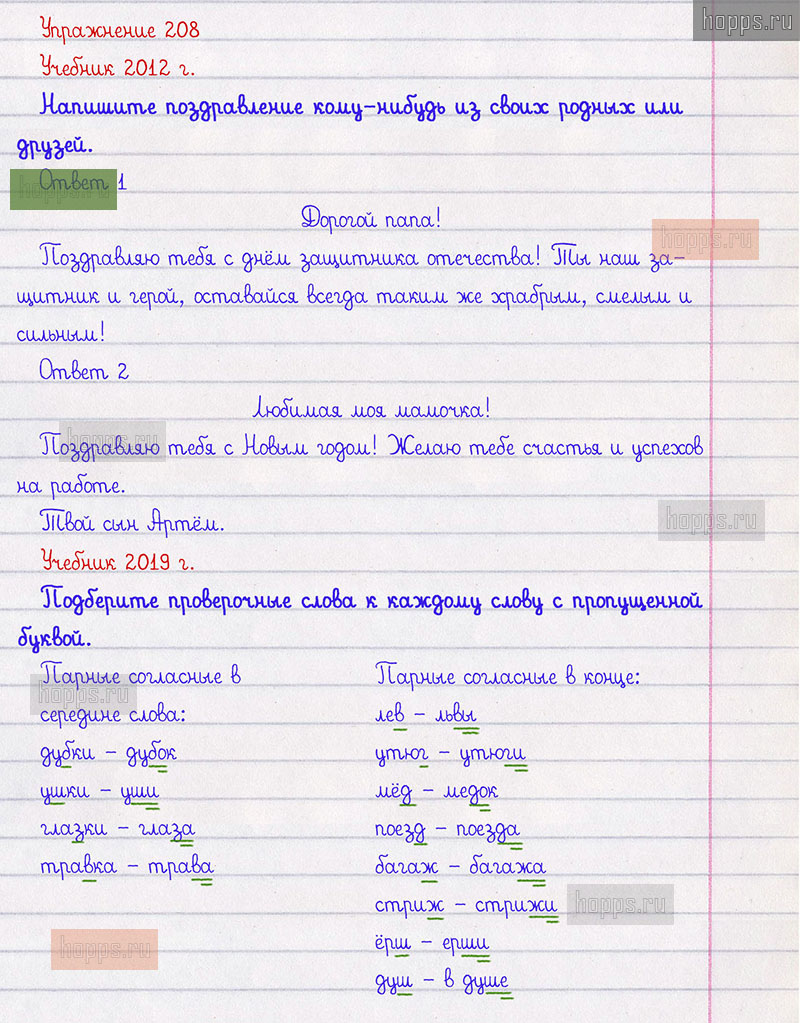 hopps.ru
Упражнение 208
Учебник 2012 г.
Напишите поздравление кому-нибудь из своих родных или
друзей.
Ответ 1
hopps.ru
Дорогой папа!
hopps.ru
Поздравляю тебя с днём защитника отечества! Ты наш за-
щитник и герой, оставайся всегда таким же храбрым, смелым и
сильным!
Ответ 2
Любимая моя мамочка!
hopps.ru
Поздравляю тебя с Новым годом! Желаю тебе счастья и успехов
на работе.
Твой сын Артём.
hopps.ru
Учебник 2019 г.
Подберите проверочные слова к каждому слову с пропущенной
буквой.
Парные согласные в
hopps.ru
середине слова:
дубки – дубок
ушки – уши
глазки – глаза
травка – трава
Парные согласные в конце:
лев – львы
утюг – утюги
мёд – медок
поезд – поезда
багаж – багажа
стриж – стрижи
hopps.ru
ёрш – ерши
душ – в душе
hopps.ru